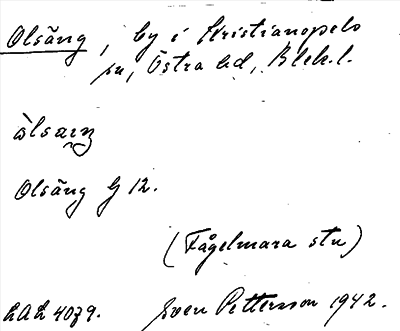 Olsäng, by i Kristianopels
sn, Östra hd, Blek. l.
òlsaŋ
Olsäng G 12.
(Fågelmara stn)
LAL 4079. Sven Pettersson 1942.